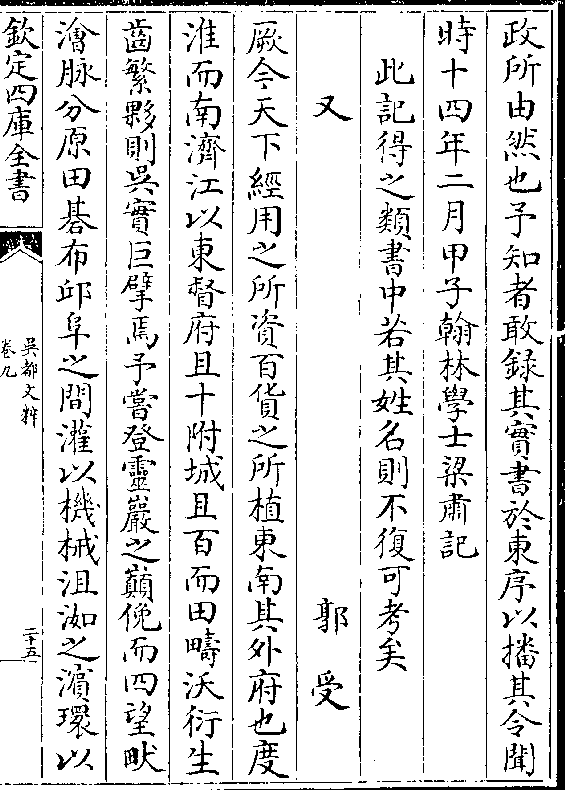 政所由然也予知者敢錄其實書於東序以播其令聞
時十四年二月甲子翰林學士梁肅記
此記得之類書中若其姓名則不復可考矣
又　郭受
厥今天下經用之所資百貨之所植東南其外府也度
淮而南濟江以東督府且十附城且百而田疇沃衍生
齒繁夥則吳實巨擘焉予嘗登靈巖之巔俛而四望畎
澮脉分原田碁布邱阜之間灌以機械沮洳之濵環以
欽定四庫全書
吳都文粹
卷九
二十五